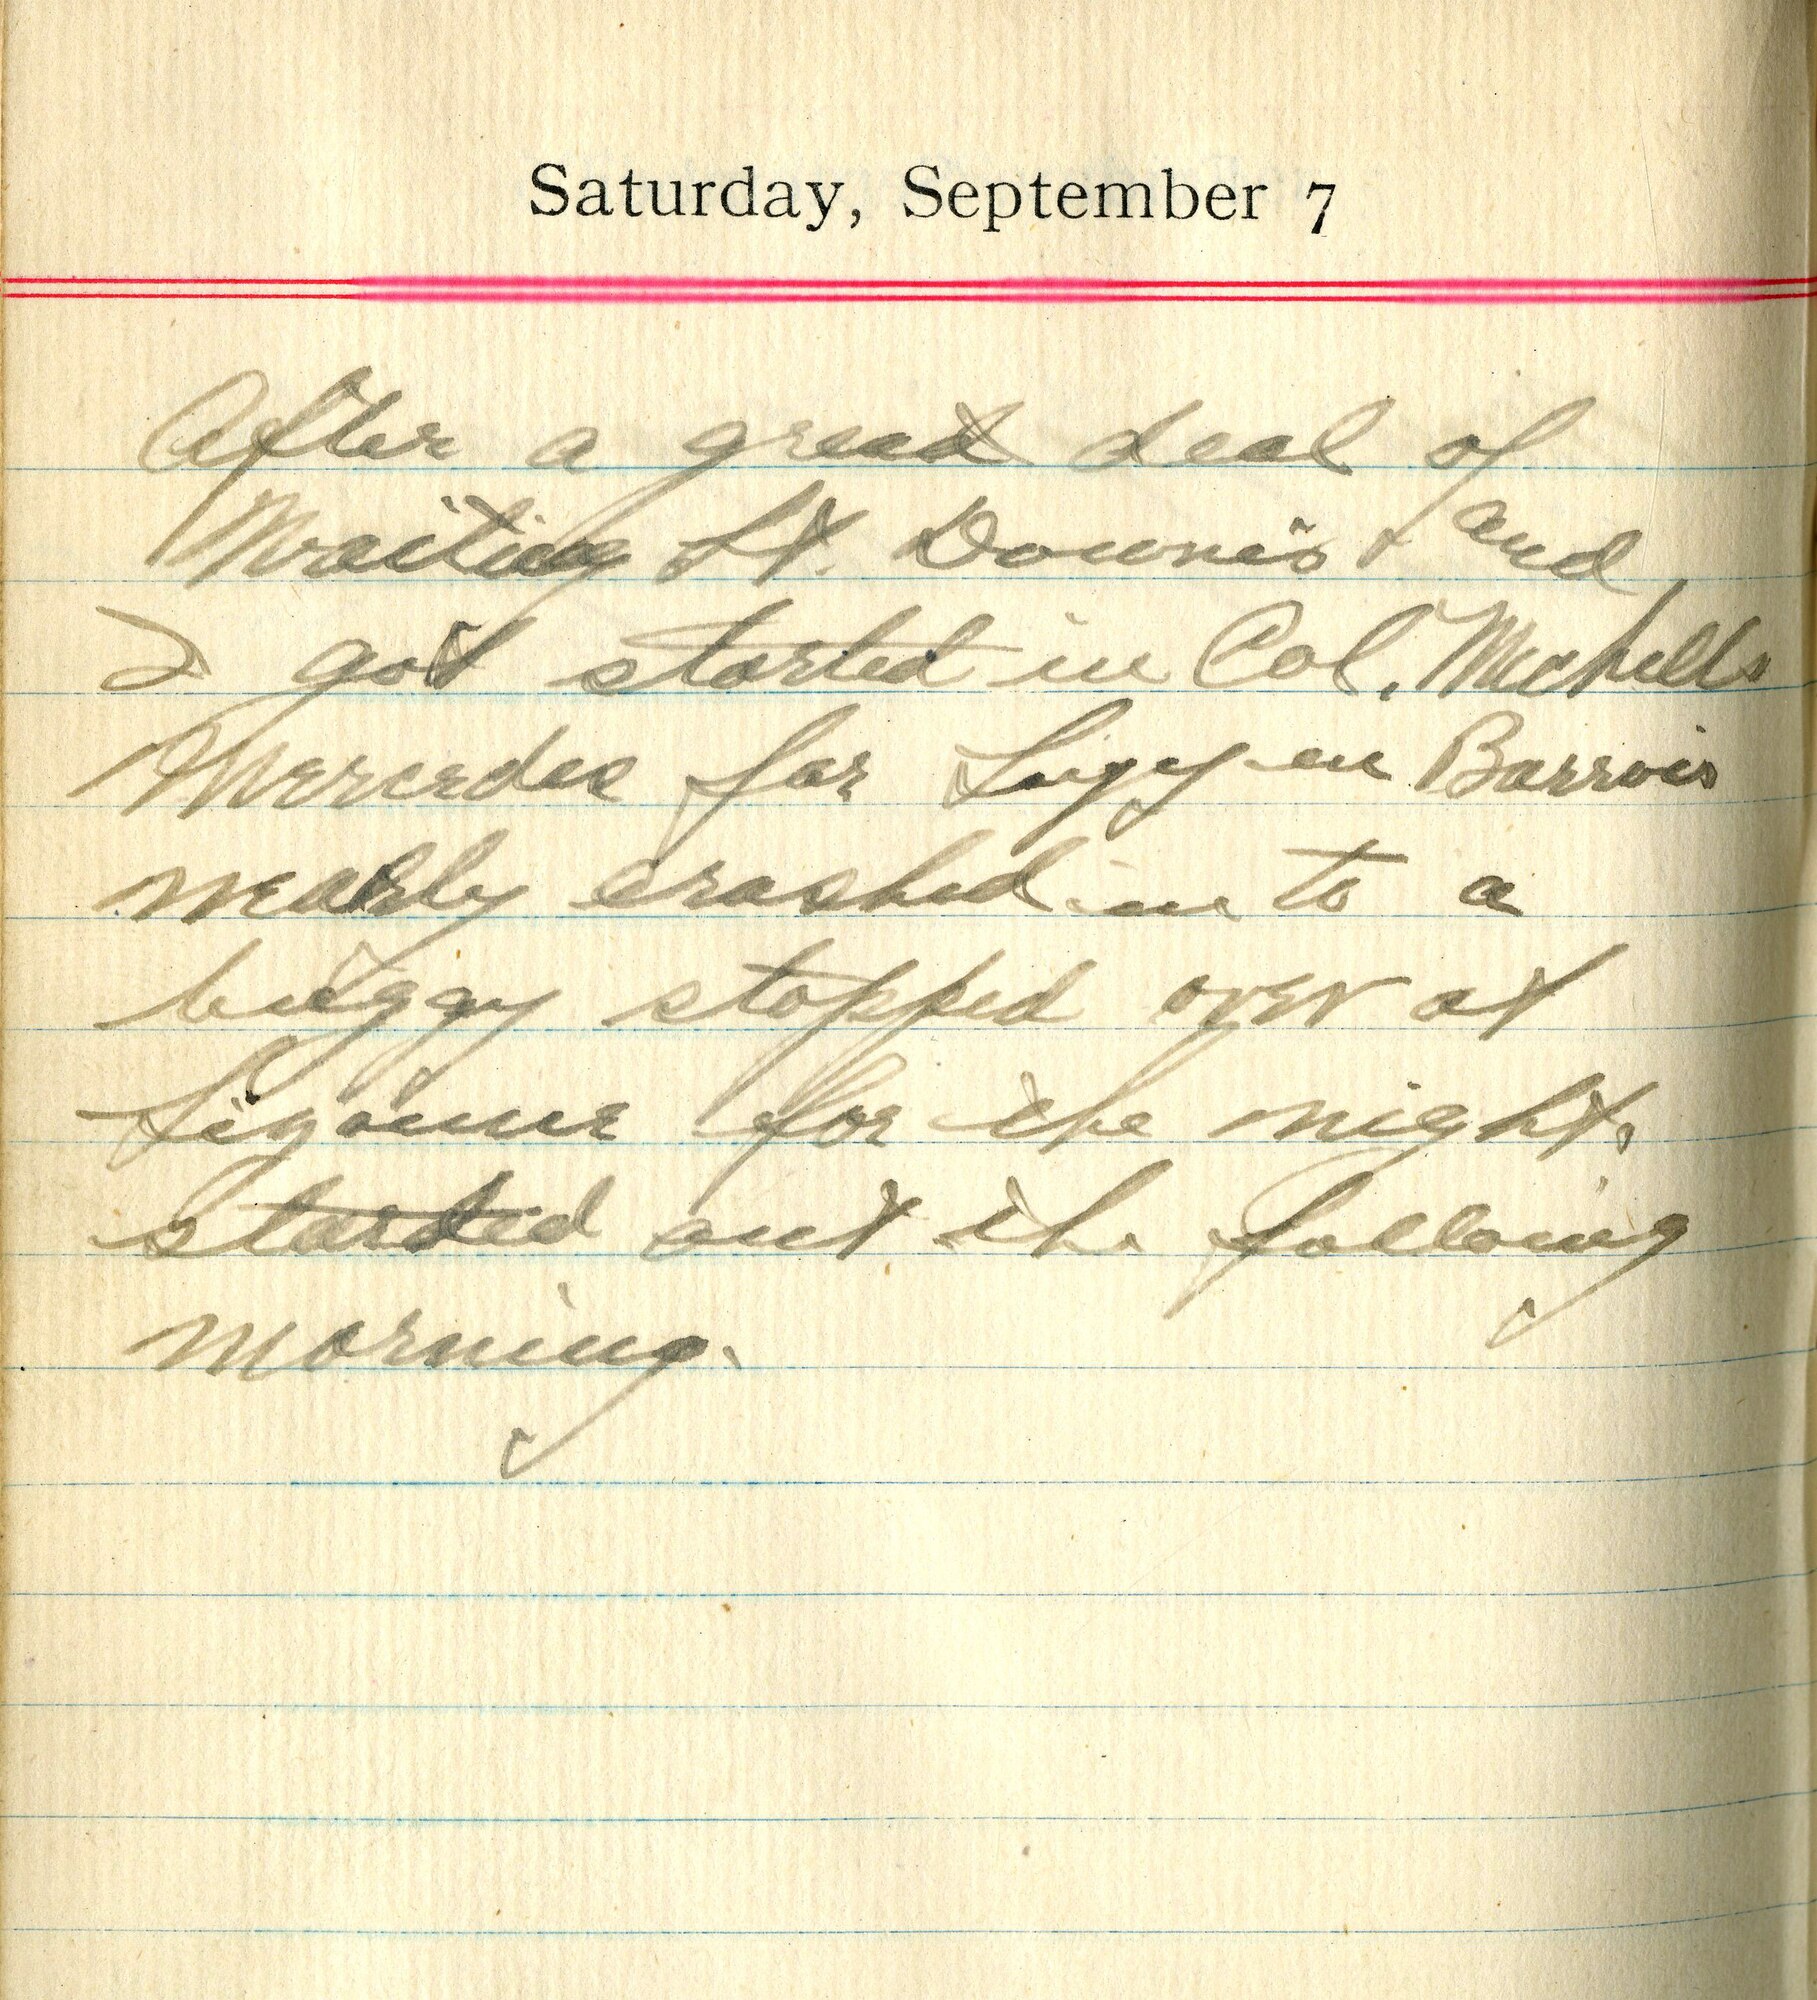 Saturday, September 7
After a great deal of
Waiting Lt. Downes + and
I got started in Col. Mitchells
Mercedes for Ligny en Barrois
nearly crashed in to a
buggy stopped over at
for the night.
started out the following
morning.